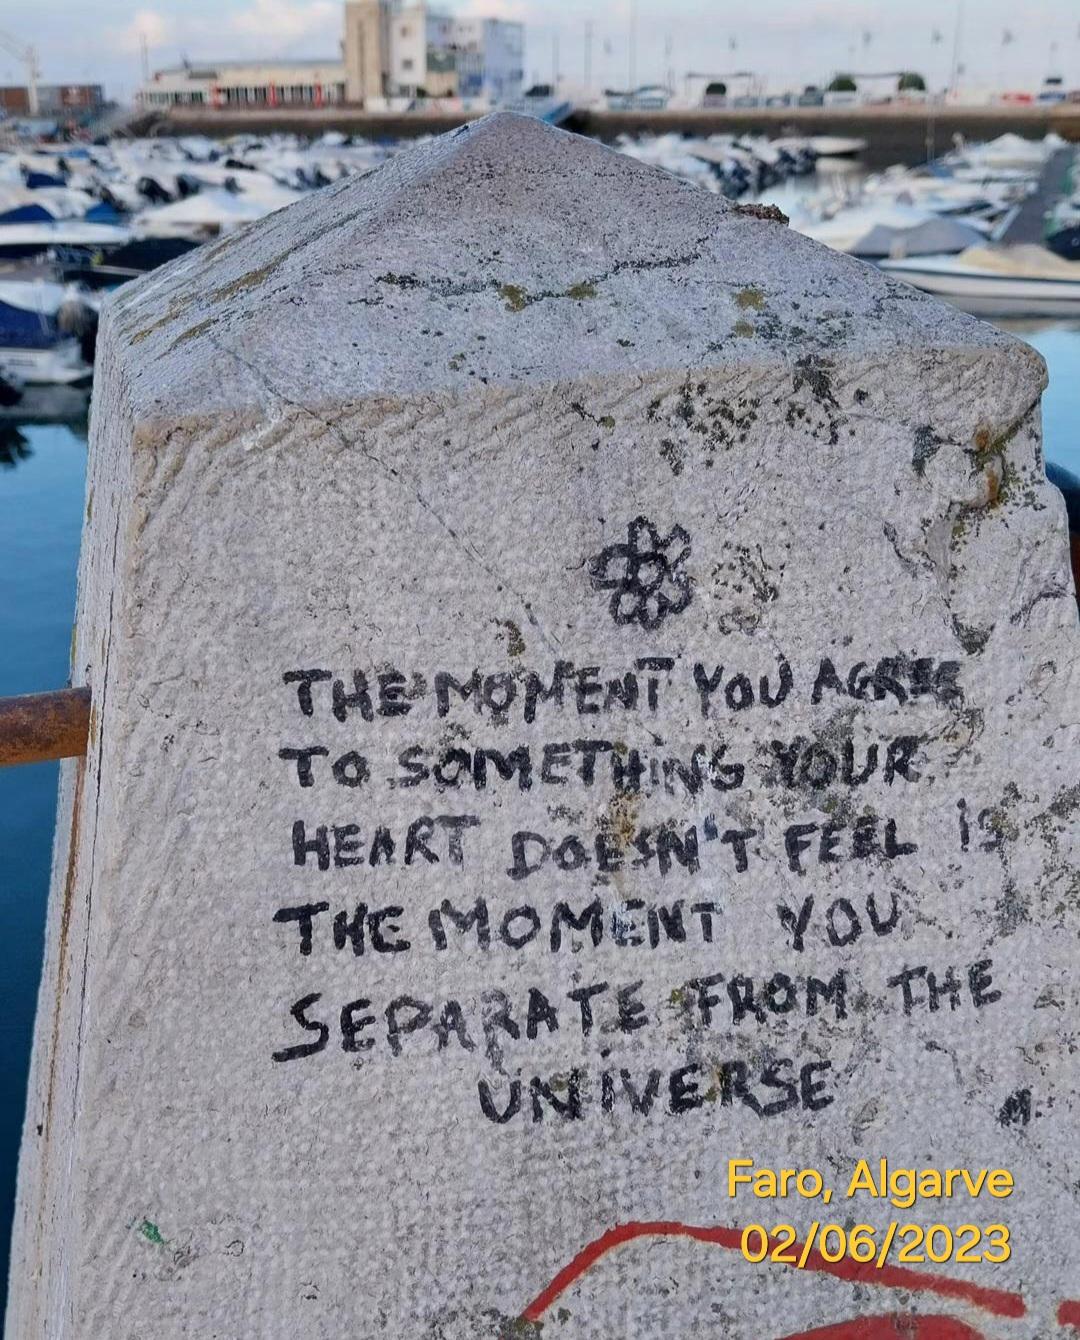 THE MOMENT YOU AGREE
TO SOMETHING YOUR
HEART DOESN'T FEEL is
THE MOMENT YOU
SEPARATE FROM THE
UNIVERSE
M.
Faro, Algarve
02/06/2023